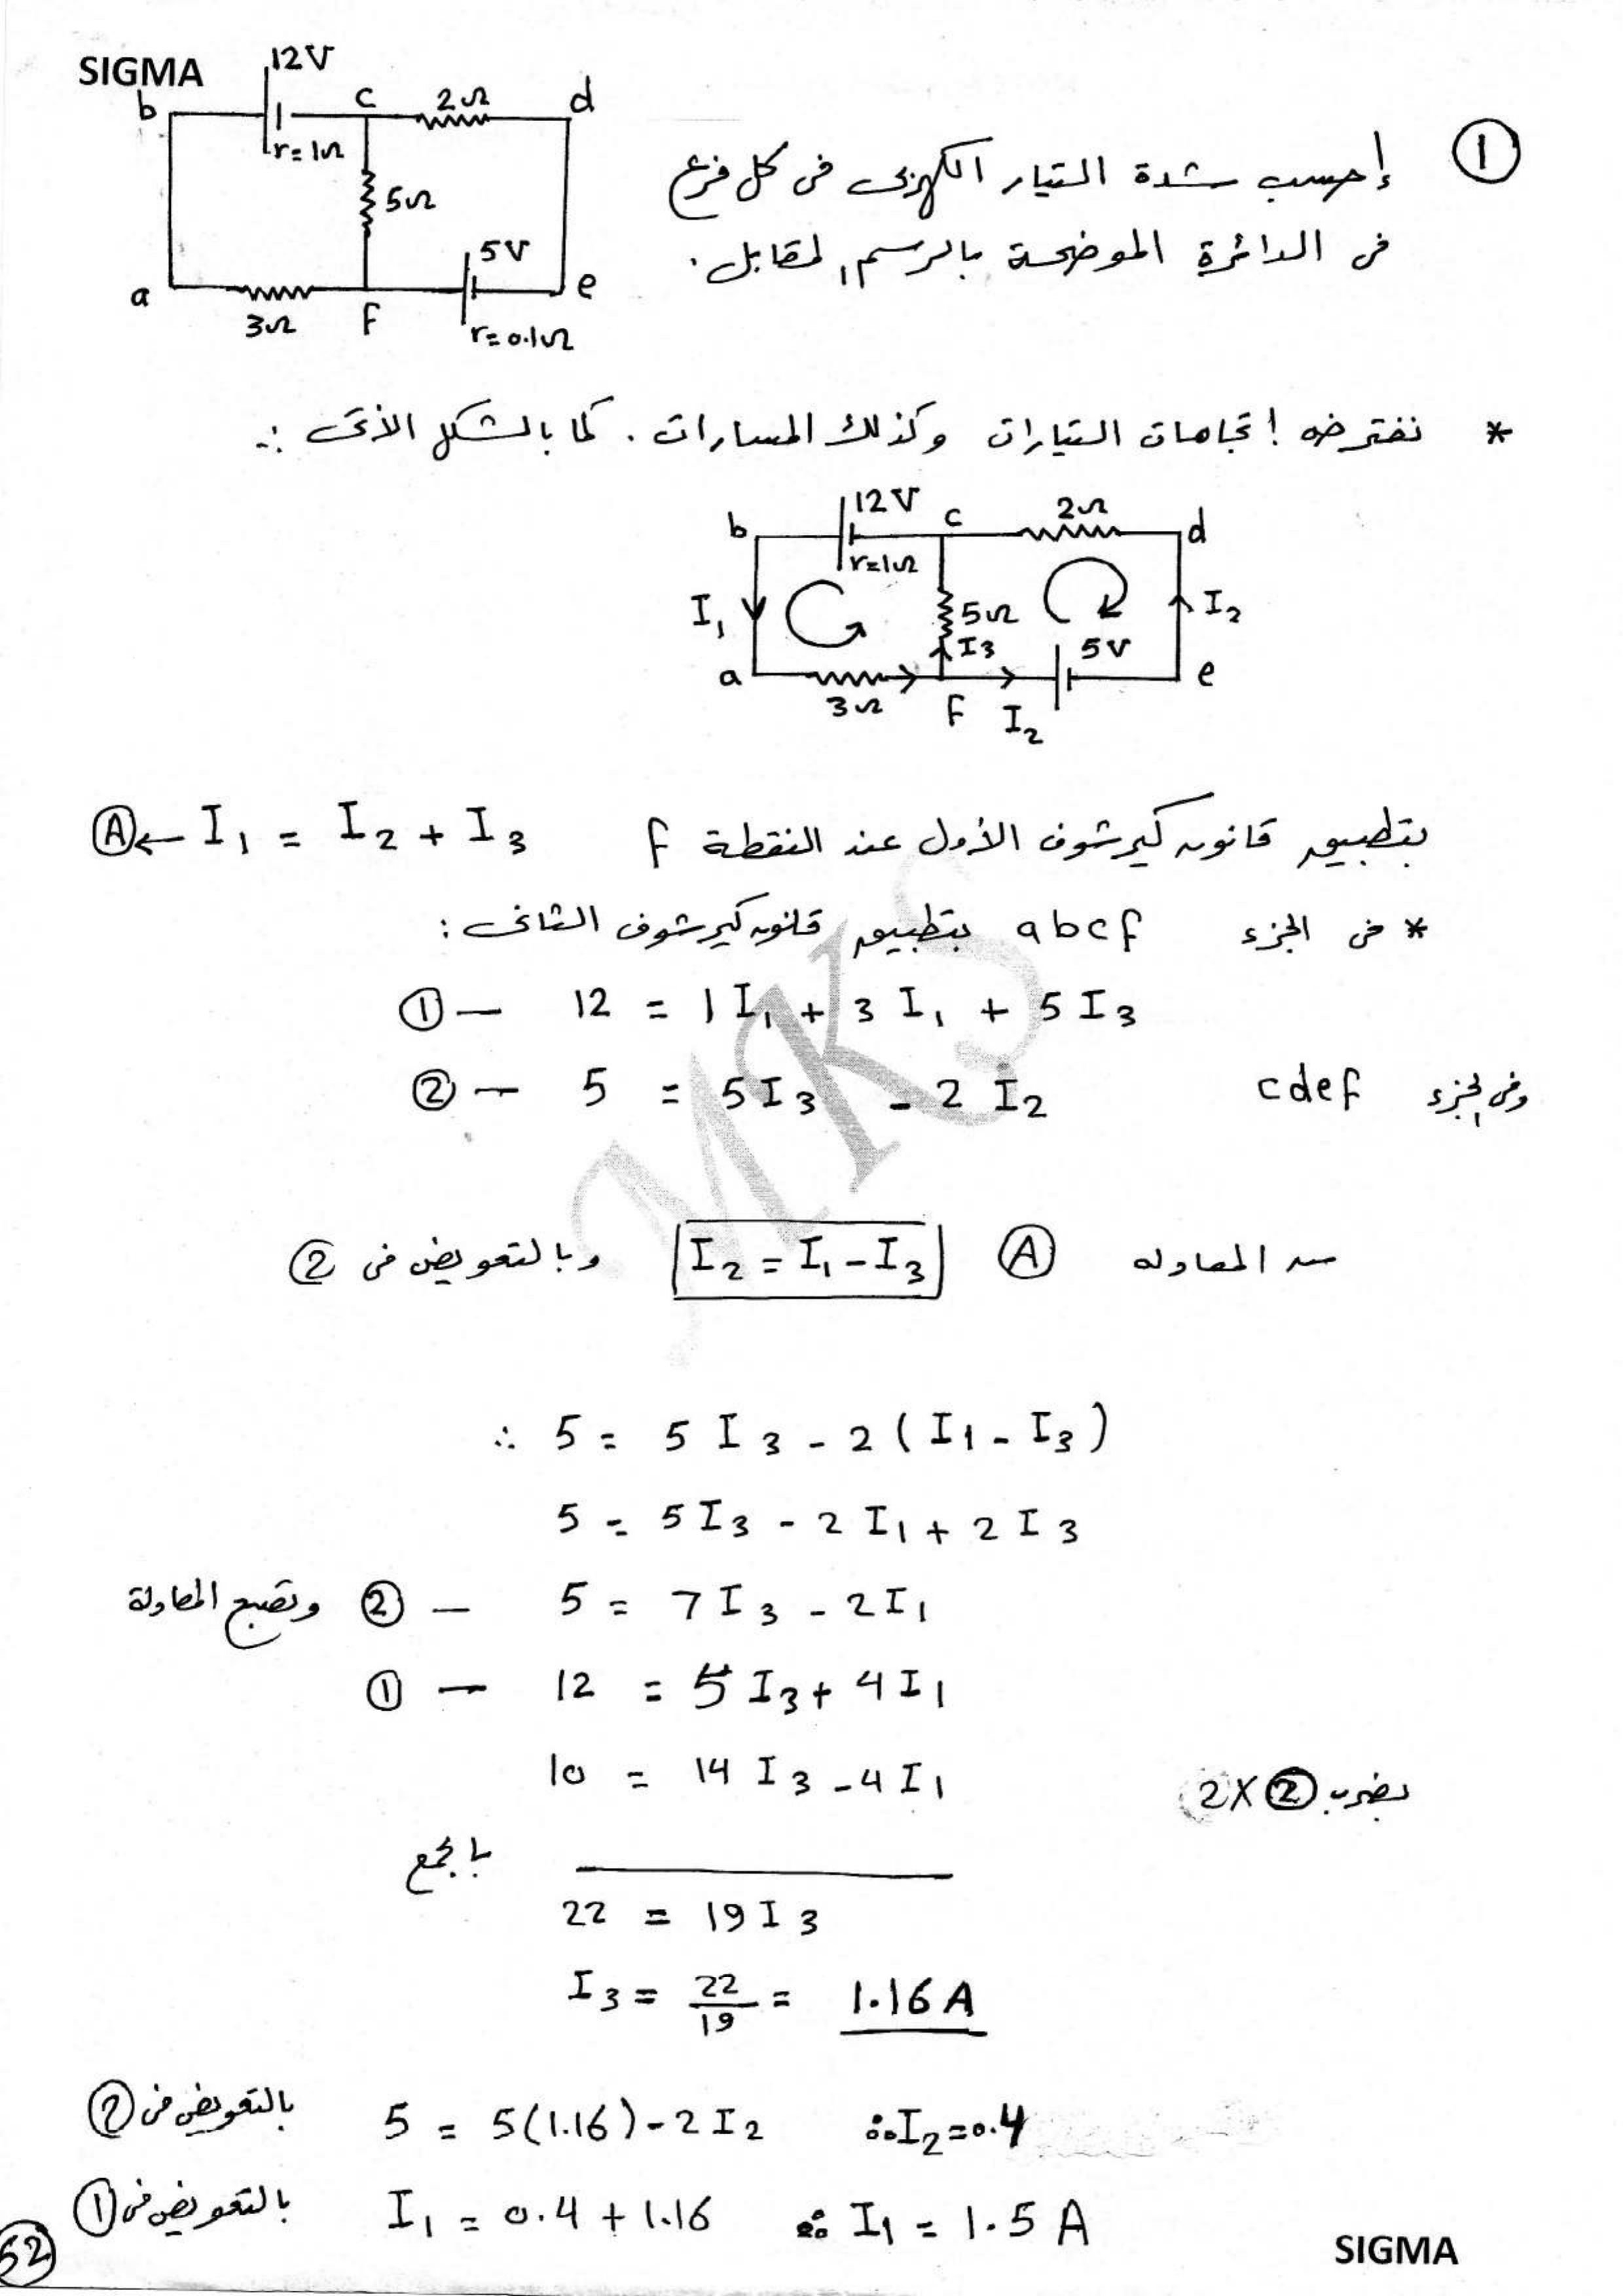 SIGMA
12V
b
c
2Ω
d
r=1Ω
5Ω
5V
a
3Ω
f
e
r=0.1Ω
① إحسب شدة التيار الكهربى فى كل فرع
فى الدائرة الموضحة بالرسم المقابل.
* نفترض إتجاهات التيارات وكذلك المسارات. كما بالشكل الأتى :-
12V
b
c
2Ω
d
r=1Ω
I₁
5Ω
I₂
I3
5V
a
3Ω
f
I₂
e
بتطبيق قانون كيرشوف الأول عند النقطة f I₁ = I₂ + I₃ ← Ⓐ
* فى الجزء abcf بتطبيق قانون كيرشوف الثانى :
① — 12 = 1 I₁ + 3 I₁ + 5 I₃
وفى الجزء cdef ② — 5 = 5 I₃ - 2 I₂
من المعادله Ⓐ I₂ = I₁ - I₃ وبالتعويض فى ②
∴ 5 = 5 I₃ - 2 ( I₁ - I₃ )
5 = 5 I₃ - 2 I₁ + 2 I₃
وتصبح المعادلة ② — 5 = 7 I₃ - 2 I₁
① — 12 = 5 I₃ + 4 I₁
بضرب ② X 2 10 = 14 I₃ - 4 I₁
بالجمع
22 = 19 I₃
I₃ = 22/19 = 1.16 A
بالتعويض فى ② 5 = 5(1.16) - 2 I₂ ∴ I₂ = 0.4
بالتعويض فى ① I₁ = 0.4 + 1.16 ∴ I₁ = 1.5 A
52
SIGMA
MKS